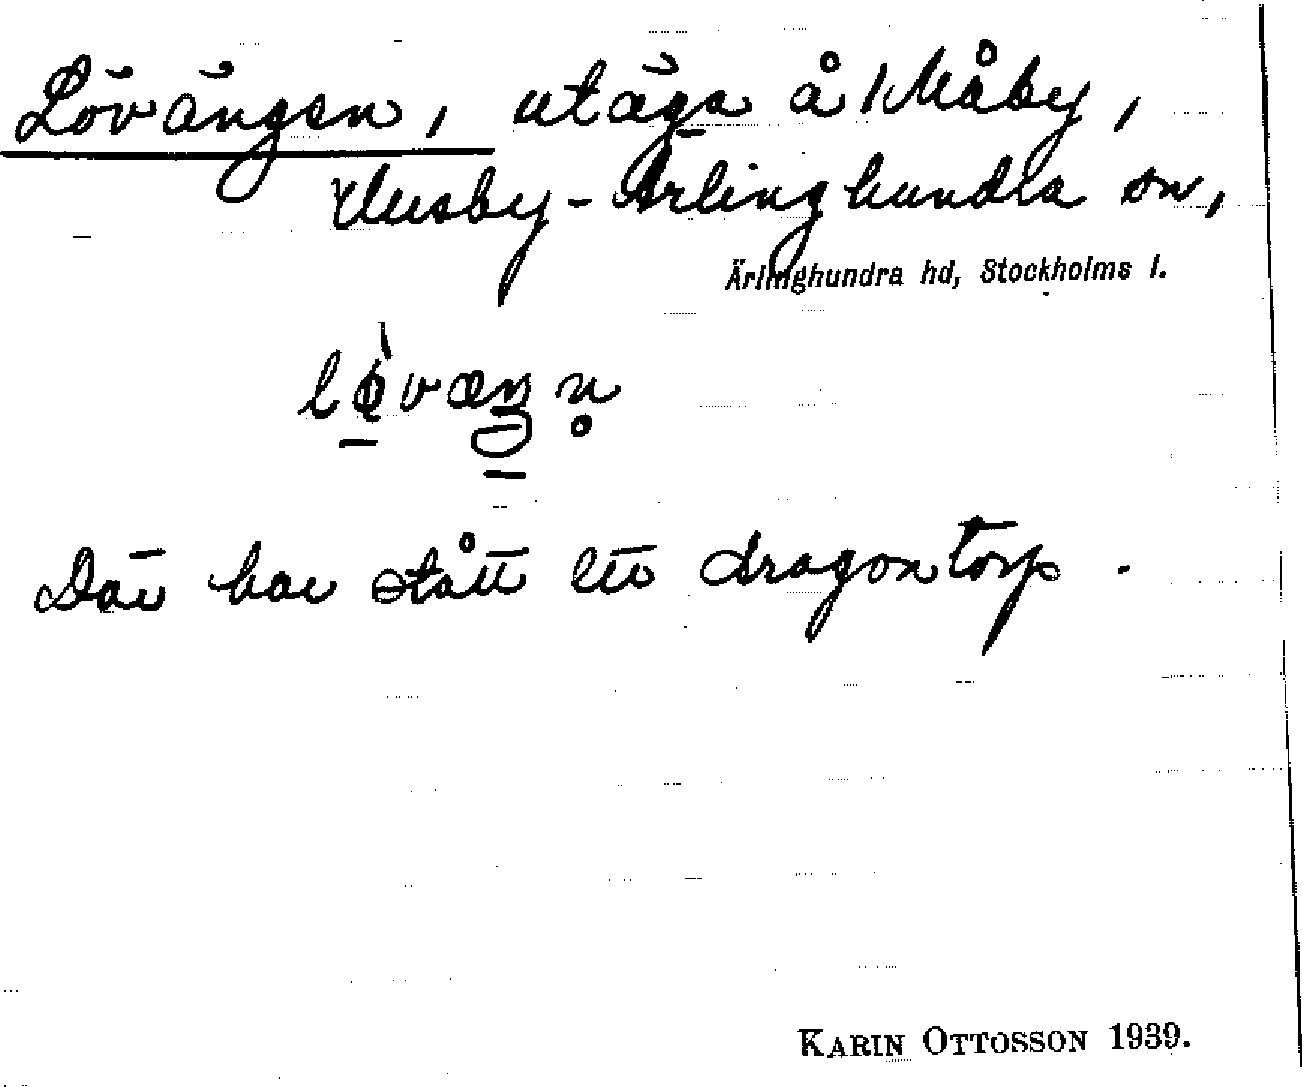 Lövängen, utäga å Måby,
Husby-Ärlinghundra sn,
Ärlinghundra hd, Stockholms l.
Där har stått ett dragontorp.
KARIN OTTOSSON 1939.